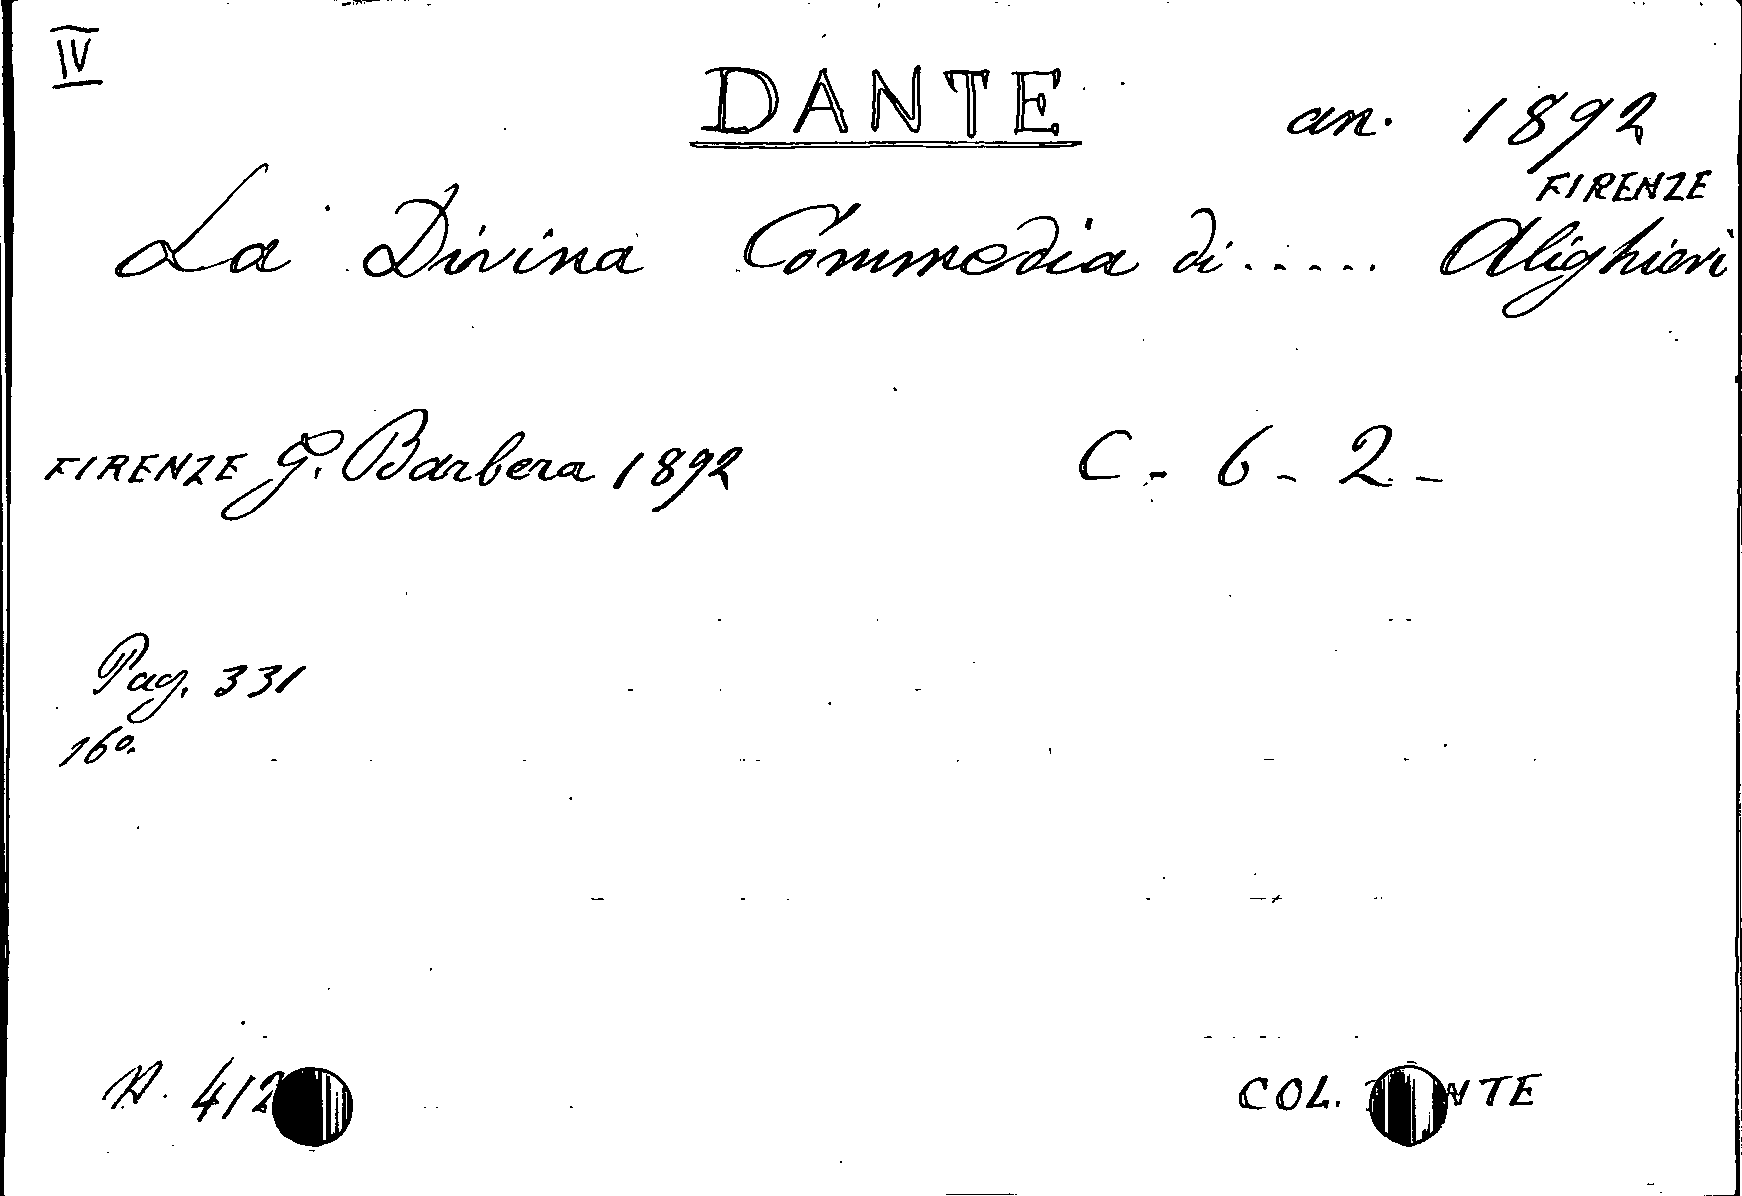 IV
DANTE an. 1892
FIRENZE
La Divina Commedia di ..... Alighieri
FIRENZE G. Barbera 1892 C - 6 - 2 -
Pag. 331
16º.
N. 412
COL.